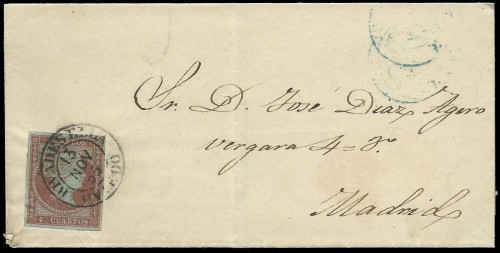 Sr. D. José Diaz Agero
vergara 4=3º.
Madrid
RIVADESELLA
OVIEDO
13
NOV
CUARTOS